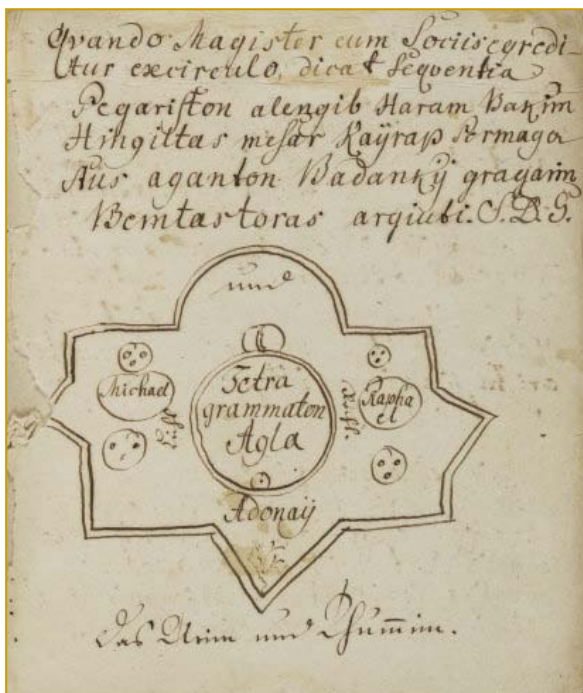 Qvando Magister cum Sociis egredi-
tur ex circulo, dicat seqventia
Pegariston alengib Haram Bakim
Hingiltas mesar Kaÿrap Sermaga
aganton Badankÿ gragarim
Bemtastoras argiubi. S. D. G.
und
Michael
Tetra
grammaton
Agla
Rapha
el
Adonaÿ
Das Urim und Thum̄im.